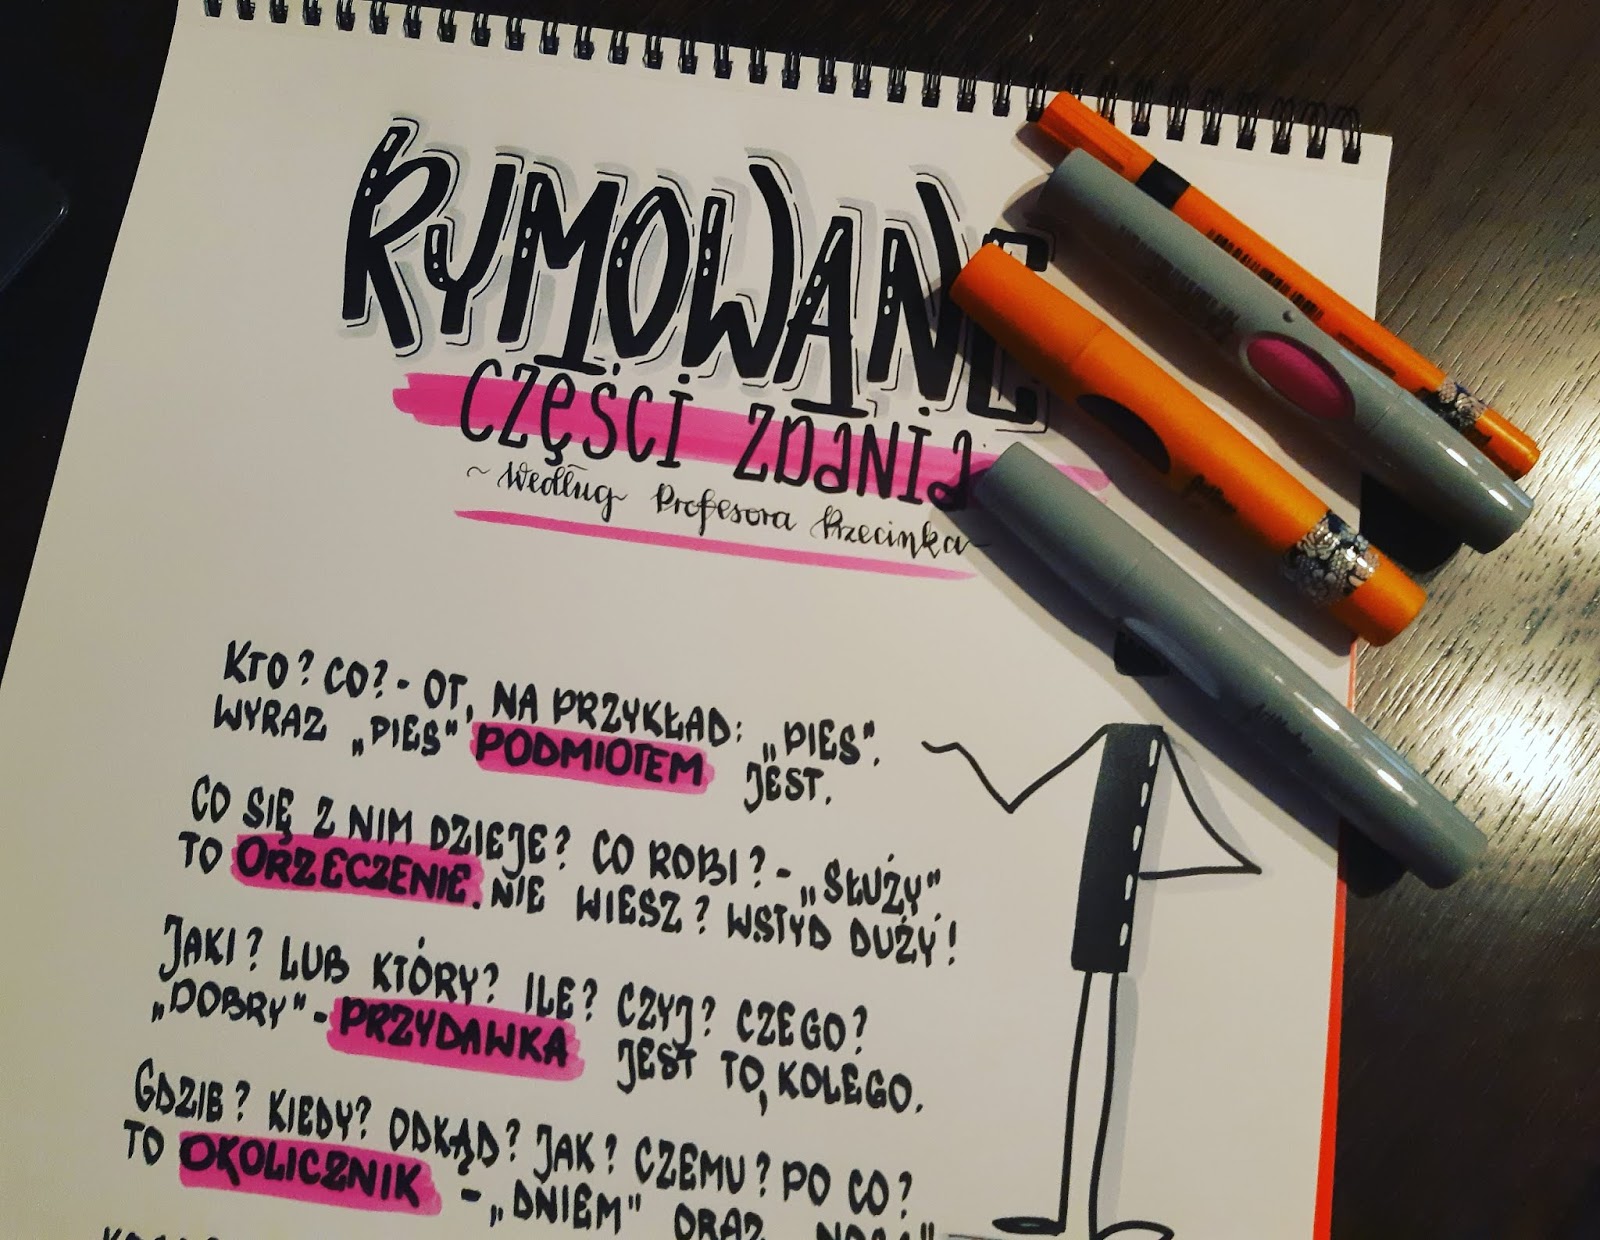 RYMOWANE
CZĘŚCI ZDANIA
~ Według Profesora Przecinka ~
KTO? CO? - OT, NA PRZYKŁAD: „PIES".
WYRAZ „PIES" PODMIOTEM JEST.
CO SIĘ Z NIM DZIEJE? CO ROBI? - „SŁUŻY".
TO ORZECZENIE. NIE WIESZ? WSTYD DUŻY!
JAKI? LUB KTÓRY? ILE? CZYJ? CZEGO?
„DOBRY" - PRZYDAWKA JEST TO, KOLEGO.
GDZIE? KIEDY? ODKĄD? JAK? CZEMU? PO CO?
TO OKOLICZNIK - „DNIEM" ORAZ